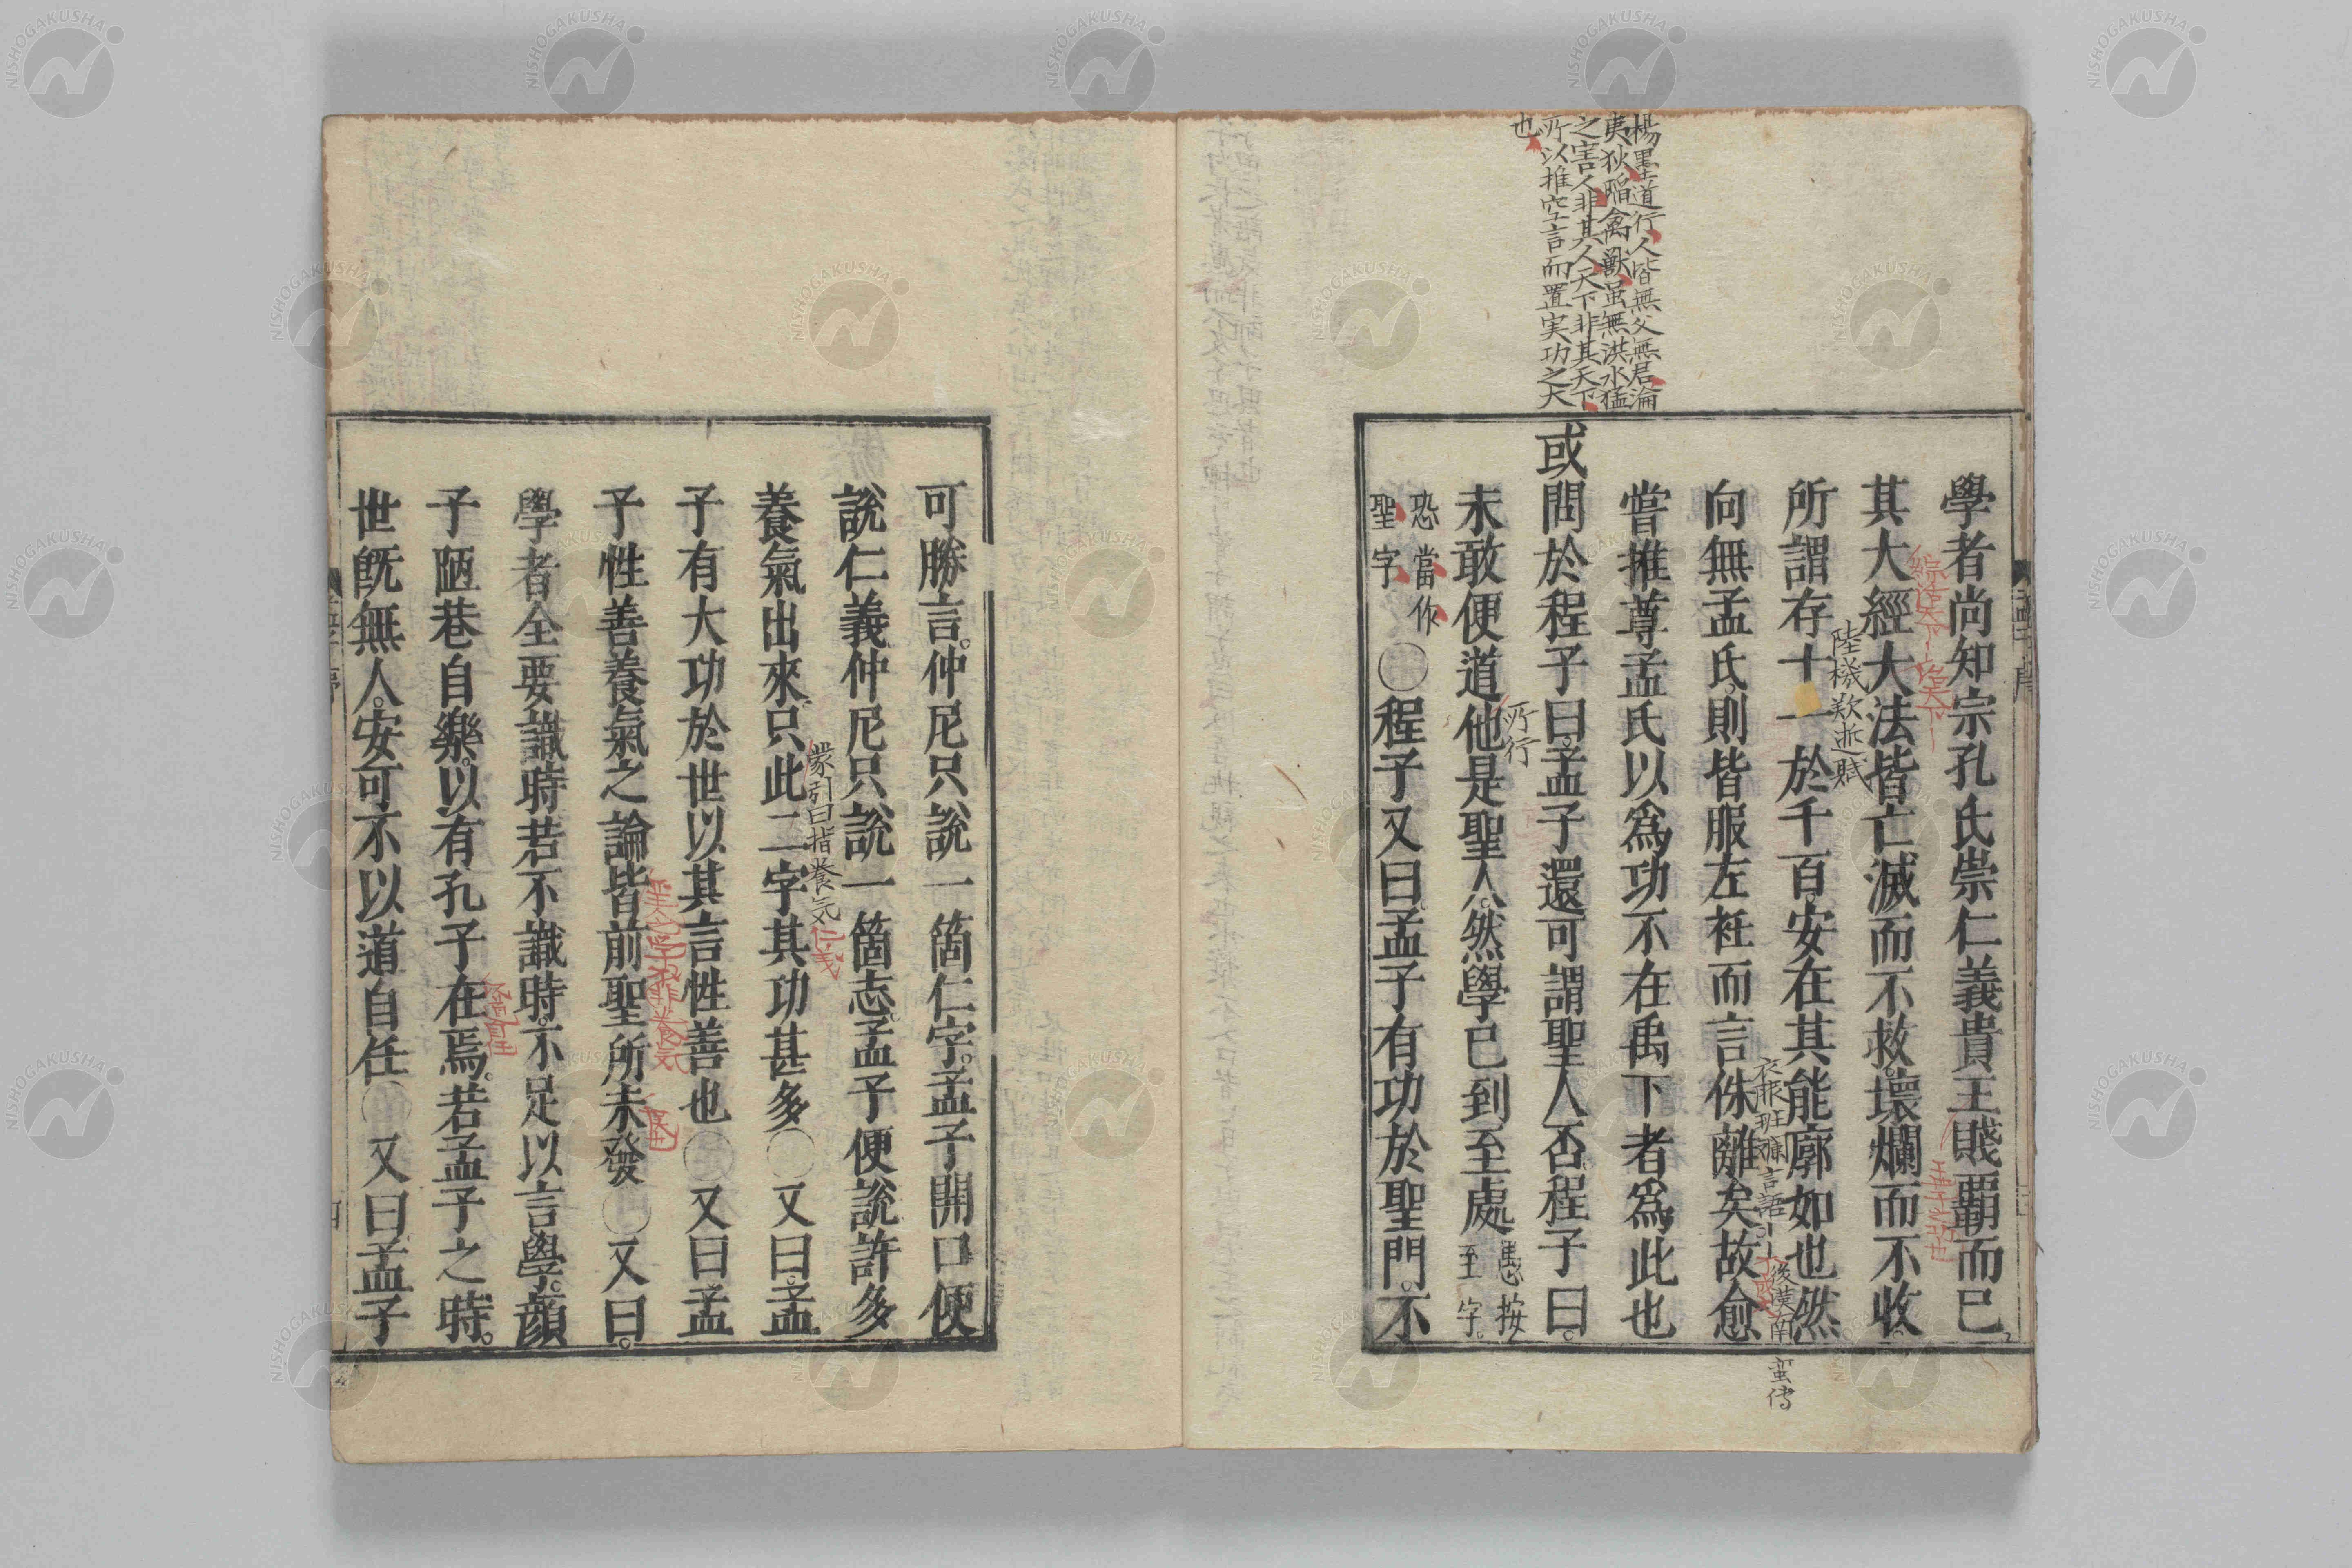 楊墨道行人皆無父無君淪
夷狄陷禽獸虽無洪水猛
之害人非其人天下非其天下
所以推空言而置実功之大
也
學者尚知宗孔氏崇仁義貴王賤覇而已
其大經大法皆亡滅而不救。壞爛而不收。
陸機歎逝賦
所謂存十一於千百。安在其能廓如也然
衣服班斕言語侏離
後漢南蛮傳
向無孟氏則皆服左衽而言侏離矣故愈
嘗推尊孟氏以爲功不在禹下者爲此也
或問於程子曰孟子還可謂聖人否程子曰。
所行
未敢便道他是聖人。然學已到至處愚按至字。
恐當作聖字○程子又曰孟子有功於聖門。不
可勝言。仲尼只說一箇仁字。孟子開口便
說仁義仲尼只說一箇志。孟子便說許多
蒙引曰指養気仁義
養氣出來。只此二字其功甚多○又曰。孟
子有大功於世以其言性善也○又曰孟
子性善養氣之論皆前聖所未發○又曰。
學者全要識時若不識時。不足以言學。顔
子陋巷自樂。以有孔子在焉。若孟子之時。
世既無人。安可不以道自任○又曰孟子